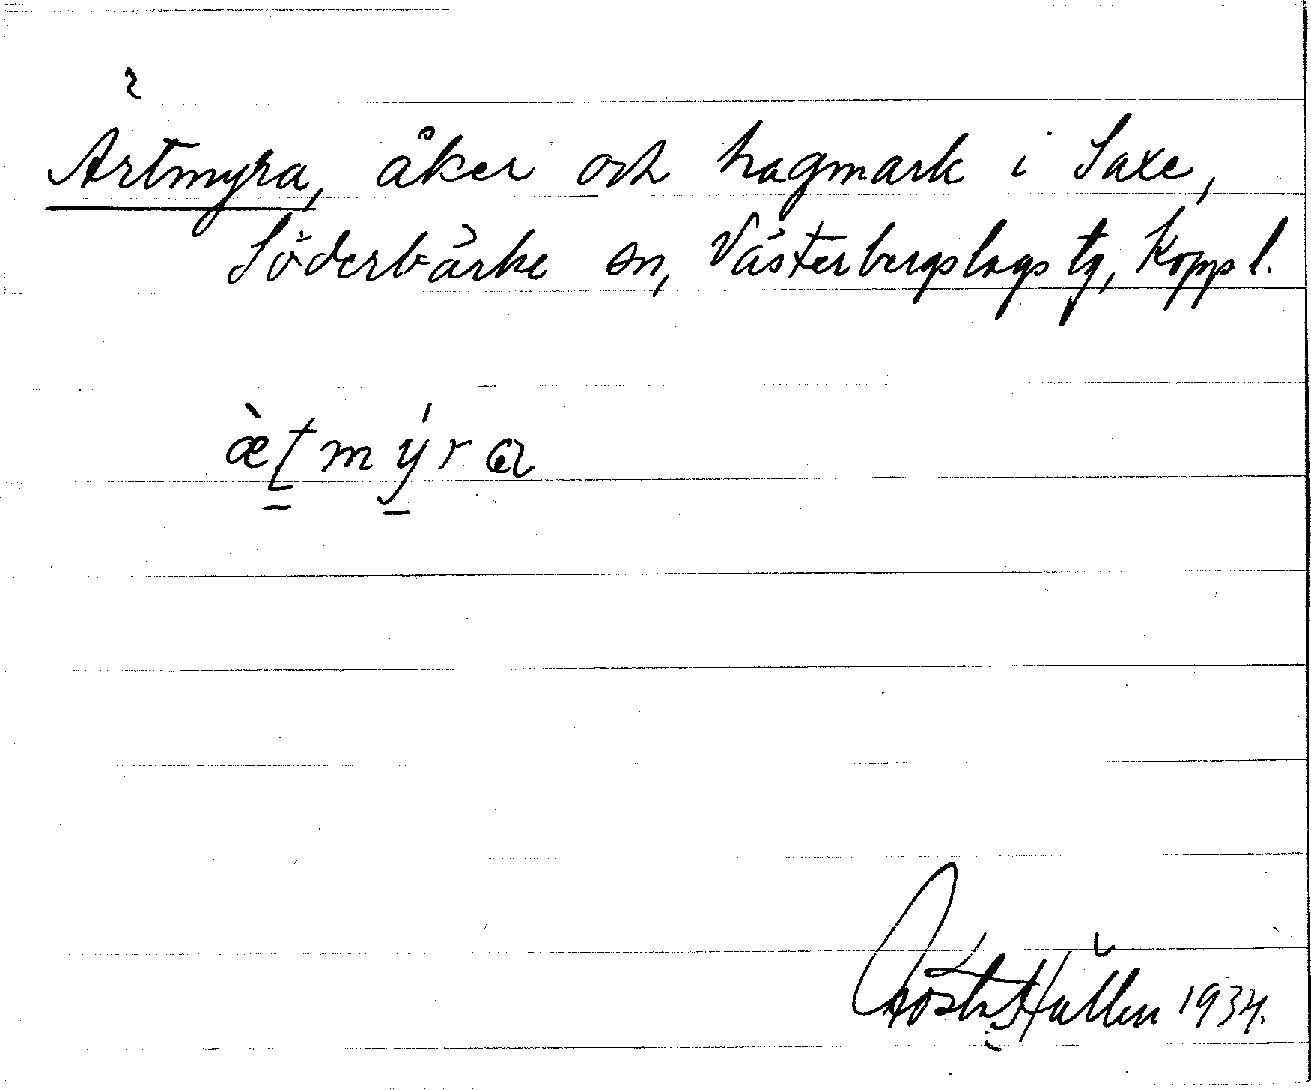 Ärtmyra, åker och hagmark i Saxe,
Söderbärke sn, Västerbergslags tg, Kopp l.
æ̀ṯmýra
Gösta Hállen 1934.